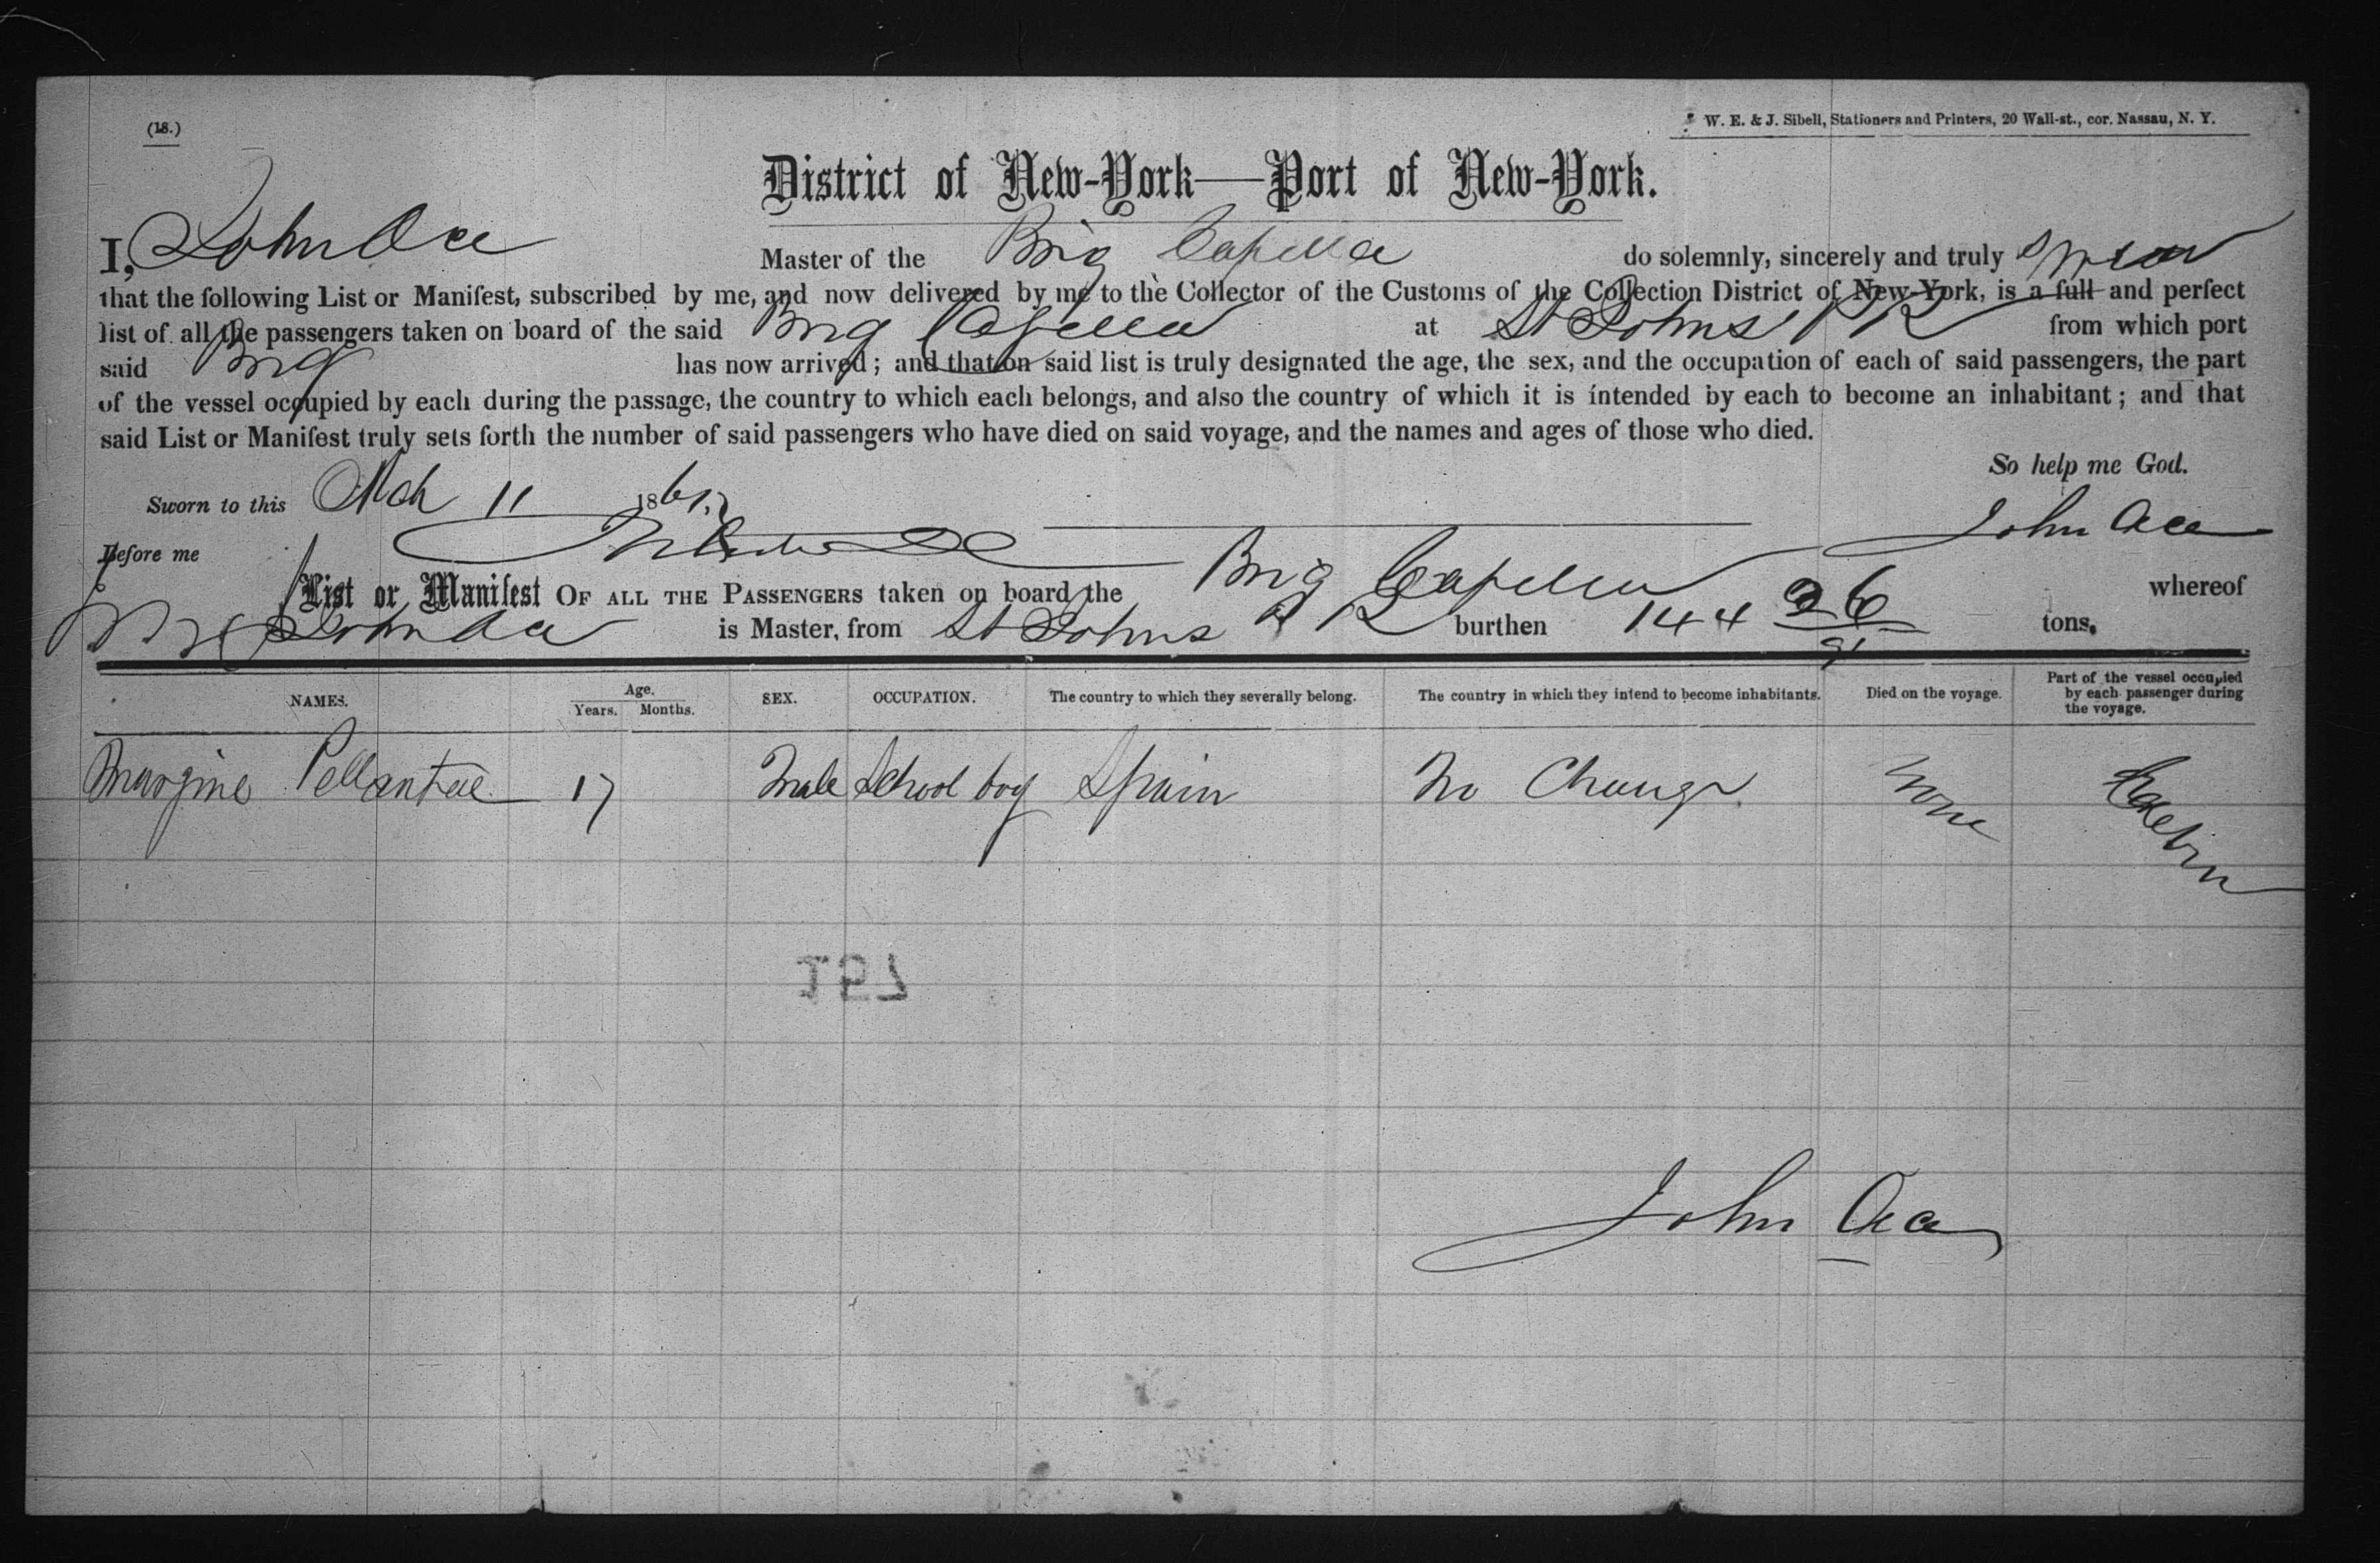 (18.)
W. E. & J. Sibell, Stationers and Printers, 20 Wall-st., cor. Nassau, N. Y.
District of New-York—Port of New-York.
I, John Master of the Brig Capella do solemnly, sincerely and truly swear
that the following List or Manifest, subscribed by me, and now delivered by me to the Collector of the Customs of the Collection District of New-York, is a full and perfect
list of all the passengers taken on board of the said Brig Capella at St Johns P R from which port
said Brig has now arrived; and that on said list is truly designated the age, the sex, and the occupation of each of said passengers, the part
of the vessel occupied by each during the passage, the country to which each belongs, and also the country of which it is intended by each to become an inhabitant; and that
said List or Manifest truly sets forth the number of said passengers who have died on said voyage, and the names and ages of those who died.
So help me God.
Sworn to this Mch 11 1861.
John
Before me
List or Manifest OF ALL THE PASSENGERS taken on board the Brig Capella whereof
John is Master, from St Johns P R burthen 144 26 tons.
NAMES. Age. Years. Months. SEX. OCCUPATION. The country to which they severally belong. The country in which they intend to become inhabitants. Died on the voyage. Part of the vessel occupied by each passenger during the voyage.
17 Male School boy Spain No Change None Cabin
197
John